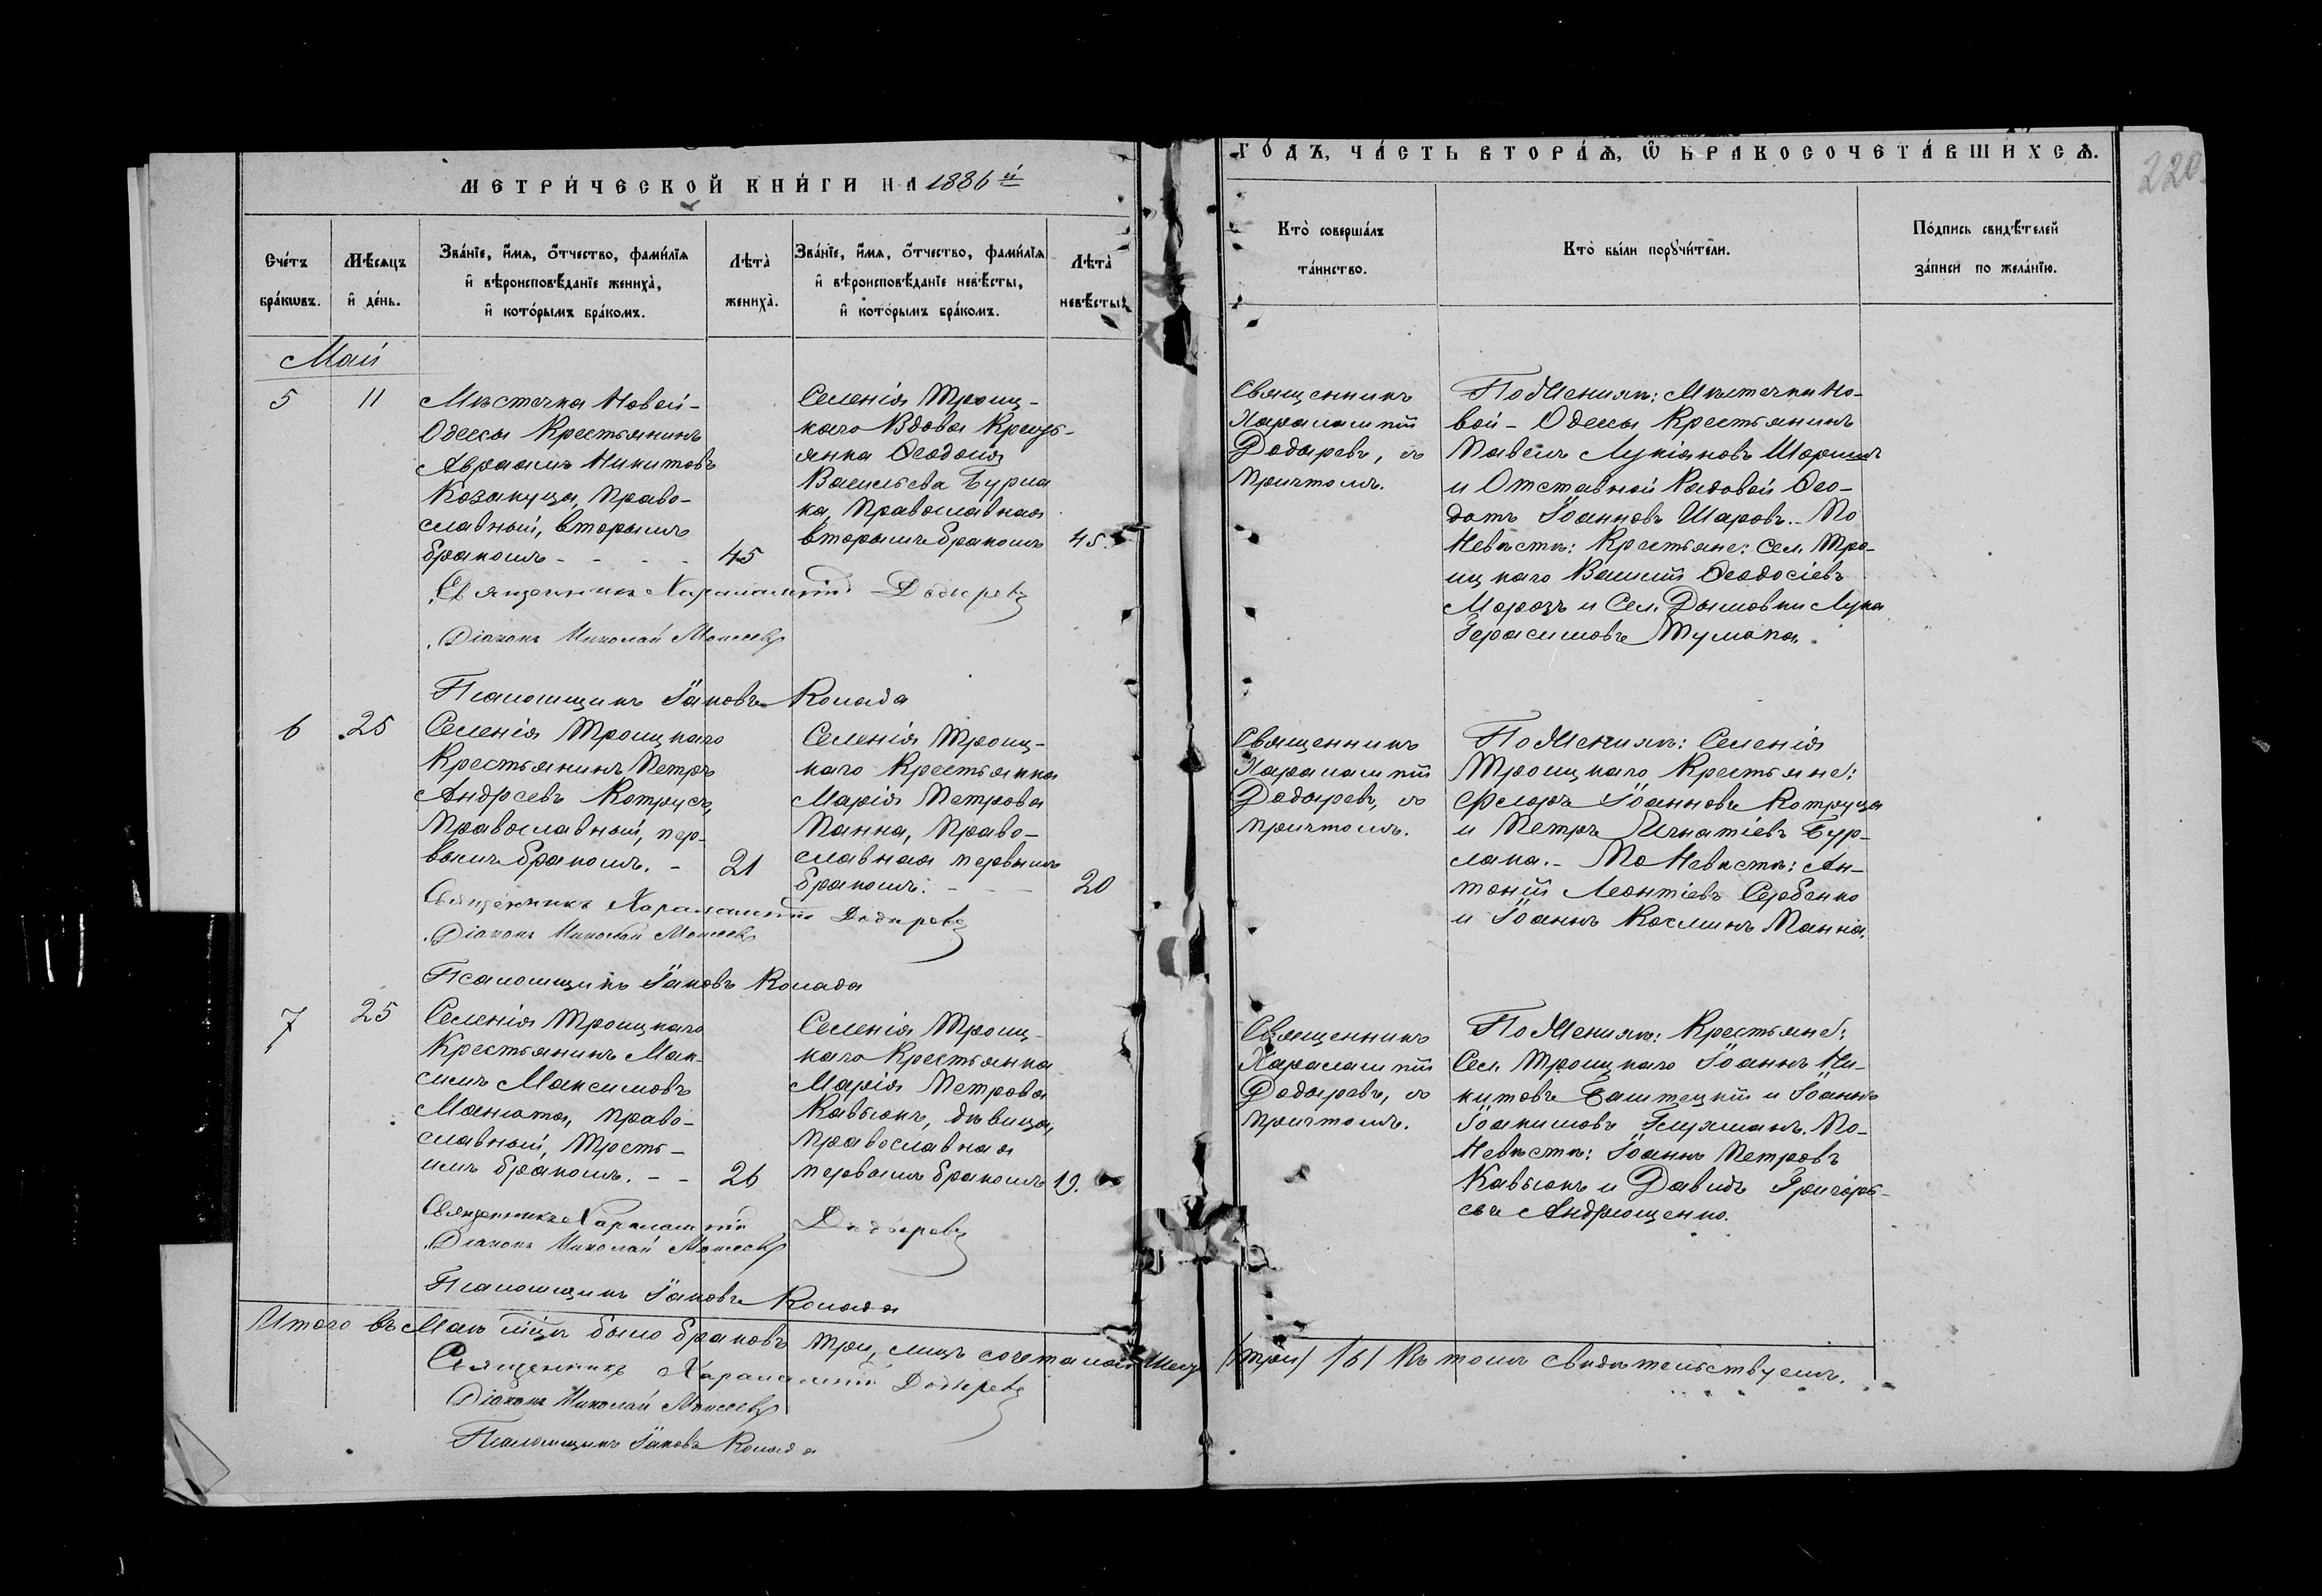 МЕТРИЧЕСКОЙ КНИГИ НА 1886й
ГОДЪ, ЧАСТЬ ВТОРАЯ, Ѡ БРАКОСОЧЕТАВШИХСЯ.
220
Счетъ браковъ.
Мѣсяцъ и день.
Званіе, имя, отчество, фамилія
и вѣроисповѣданіе жениха,
и которымъ бракомъ.
Лѣта
жениха.
Званіе, имя, отчество, фамилія
и вѣроисповѣданіе невѣсты,
и которымъ бракомъ.
Лѣта
невѣсты.
Кто совершалъ
таинство.
Кто были поручители.
Подпись свидѣтелей
записи по желанію.
Май
5
11
Мѣстечка Новой-
Одессы Крестьянинъ
Авраамъ Никитовъ
Козакуца, Право-
славный, вторымъ
бракомъ - - - -
45
Селенія Троиц-
каго Вдова Кресть-
янка Ѳеодосія
Васильева Бурла
ка, Православная
вторымъ бракомъ
45.
Священникъ
Харалампій
Додыревъ, съ
причтомъ.
По Женихѣ: Мѣстечка Но-
вой-Одессы Крестьянинъ
Павелъ Лукіановъ
и Отставной Рядовой Ѳео-
дотъ Іоанновъ Шаровъ.- По
Невѣстѣ: Крестьяне: Сел. Тро-
ицкаго Василій Ѳеодосіевъ
Морозъ и Сел. Дымовки Лука
Герасимовъ Тумака.
Священникъ Харалампій Додыревъ
Діаконъ Николай Моисеевъ
Псаломщикъ Іаковъ Колада
6
25
Селенія Троицкаго
Крестьянинъ Петръ
Андреевъ Котруса,
Православный, пер-
вымъ бракомъ. -
21
Селенія Троиц-
каго Крестьянка
Марія Петрова
Манна, Право-
славная первымъ
бракомъ. - - -
20
Священникъ
Харалампій
Додыревъ, съ
причтомъ.
По Женихѣ: Селенія
Троицкаго Крестьяне:
Флоръ Іоанновъ Котруца
и Петръ Игнатіевъ Бур-
лака.- По Невѣстѣ: Ан-
тоній Леонтіевъ Сербенко
и Іоаннъ Косминъ Манна.
Священникъ Харалампій Додыревъ
Діаконъ Николай Моисеевъ
Псаломщикъ Іаковъ Колада
7
25
Селенія Троицкаго
Крестьянинъ Мак-
симъ Максимовъ
Манюта, Право-
славный, Треть-
имъ бракомъ. - -
26
Селенія Троиц-
каго Крестьянка
Марія Петрова
Кавьюкъ, дѣвица,
Православная
первымъ бракомъ
19.
Священникъ
Харалампій
Додыревъ, съ
причтомъ.
По Женихѣ: Крестьяне:
Сел. Троицкаго Іоаннъ Ни-
китовъ Баштецкій и Іоаннъ
Іоакимовъ Гелухманъ. По-
Невѣстѣ: Іоаннъ Петровъ
Кавьюкъ и Давидъ Григорь-
евъ Андрющенко.
Священникъ Харалампій Додыревъ
Діаконъ Николай Моисеевъ
Псаломщикъ Іаковъ Колада
Итого въ Маѣ мѣсяцѣ было браковъ три, лицъ сочеталось /6/ Въ томъ свидѣтельствуемъ.
Священникъ Харалампій Додыревъ
Діаконъ Николай Моисеевъ
Псаломщикъ Іаковъ Колада